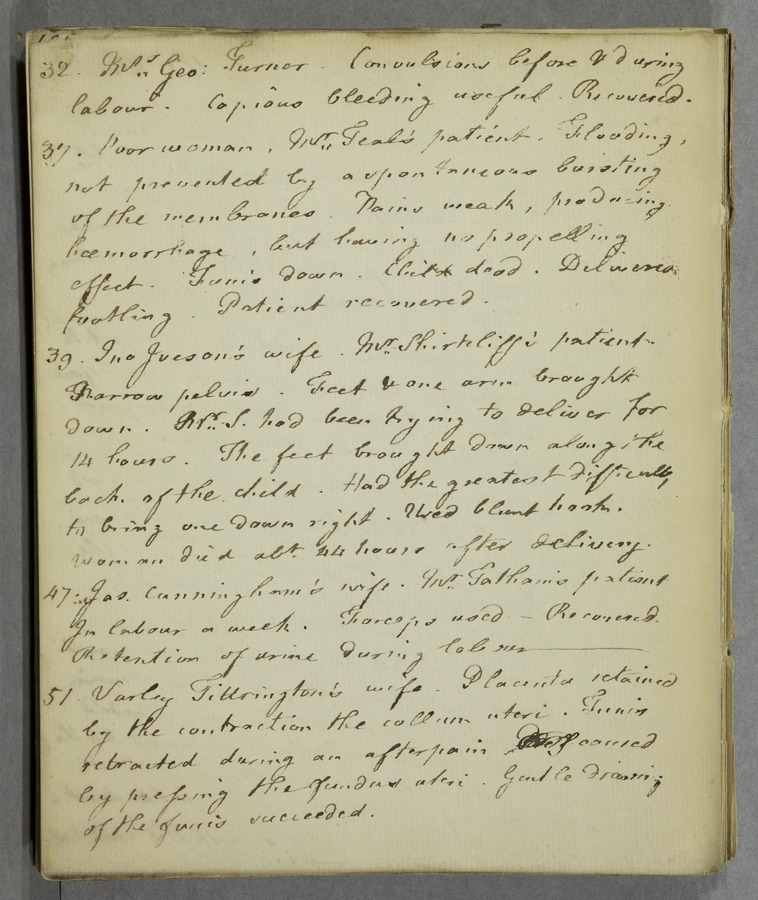 32. Mrs Geo: Turner. Convulsions before & during
labour. Copious bleeding useful. Recovered.
37. Poor woman, Mr. Teal's patient. Flooding,
not prevented by a spontaneous bursting
of the membranes. Pains weak, producing
hæmorrhage, but having no propelling
effect. Funis down. Child dead. Delivered
footling. Patient recovered.
39. Jno Jveson's wife. Mr. Shirtcliff's patient.
Narrow pelvis. Feet & one arm brought
down. Mr. S. had been trying to deliver for
14 hours. The feet brought down along the
back of the child. Had the greatest difficulty
to bring one down right. Used blunt hook.
Woman died abt. 44 hours after delivery.
47. Jas. Cunningham's wife. Mr. Tatham's patient
In labour a week. Forceps used – Recovered.
Retention of urine during labour
51. Varley Tittrington's wife. Placenta retained
by the contraction the collum uteri. Funis
retracted during an afterpain caused
by pressing the fundus uteri. Gentle drawing
of the funis succeeded.